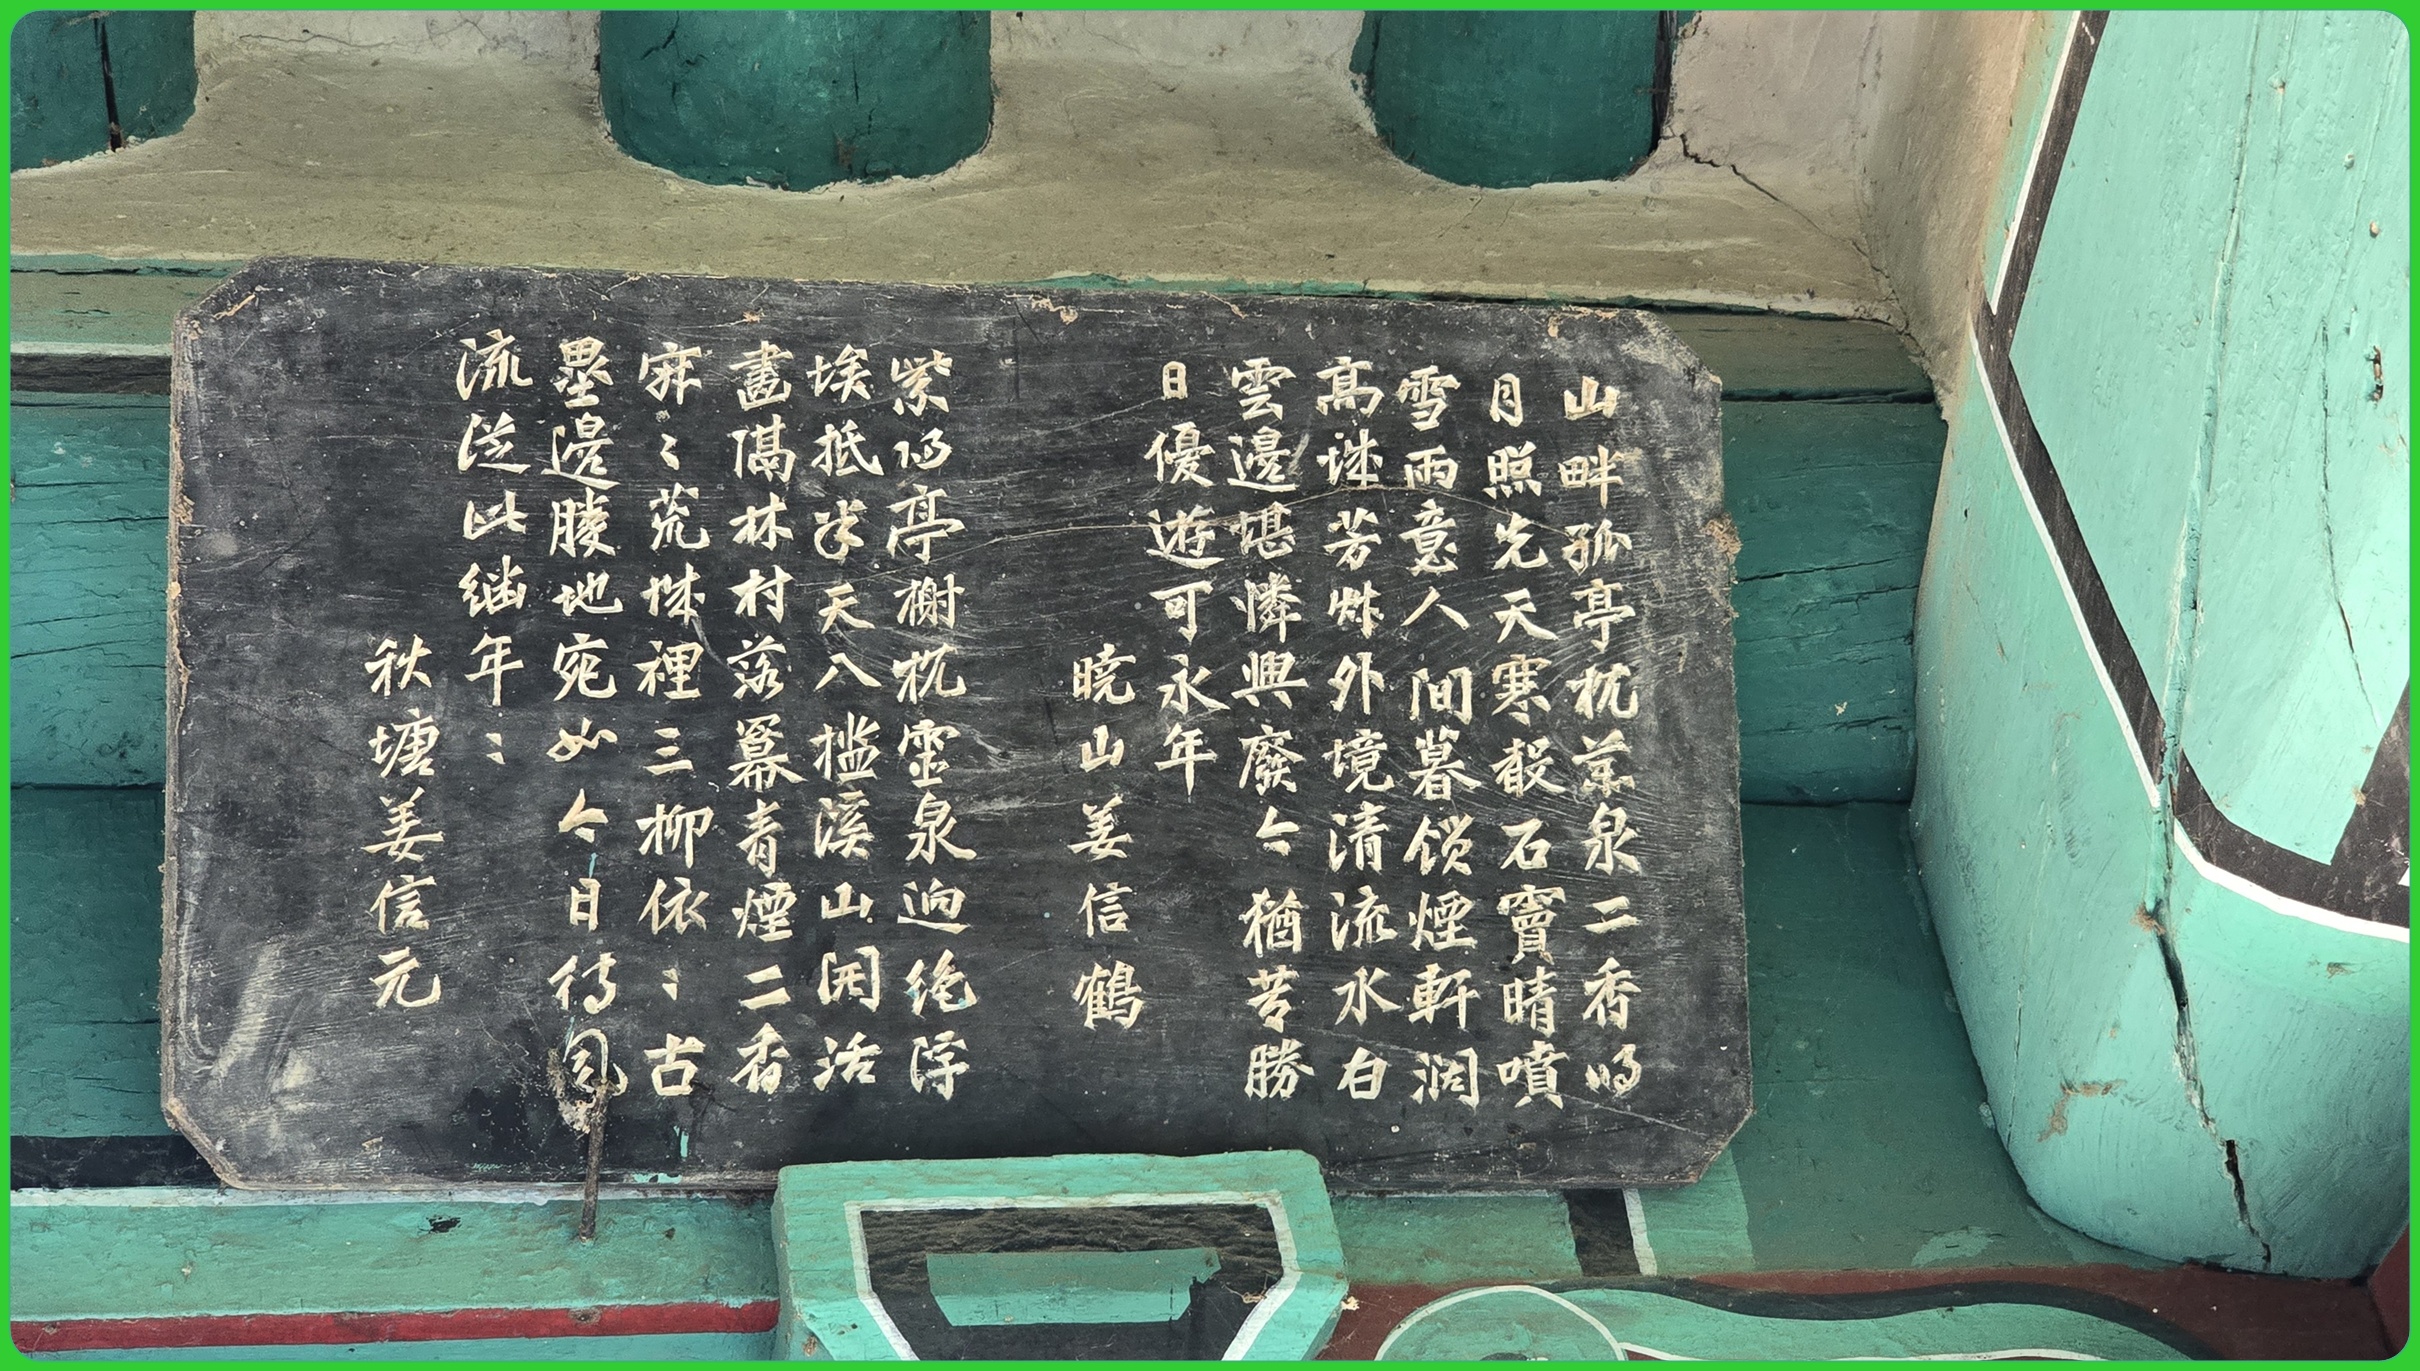 山畔孤亭枕泉二香鳴
月照先天寒殽石竇晴噴
雪雨意人間暮鎖煙軒濶
高城芳艸外境清流水白
雲邊堪憐興廢今猶苦勝
日優遊可永年
曉山姜信鶴
紫鳴亭榭枕靈泉迥絶浮
埃抵半天八檻溪山開活
畵隔林村落羃青煙二香
寂〻荒城裡三柳依〻古
壘邊勝地宛如今日得風
流從此継年〻
秋塘姜信元